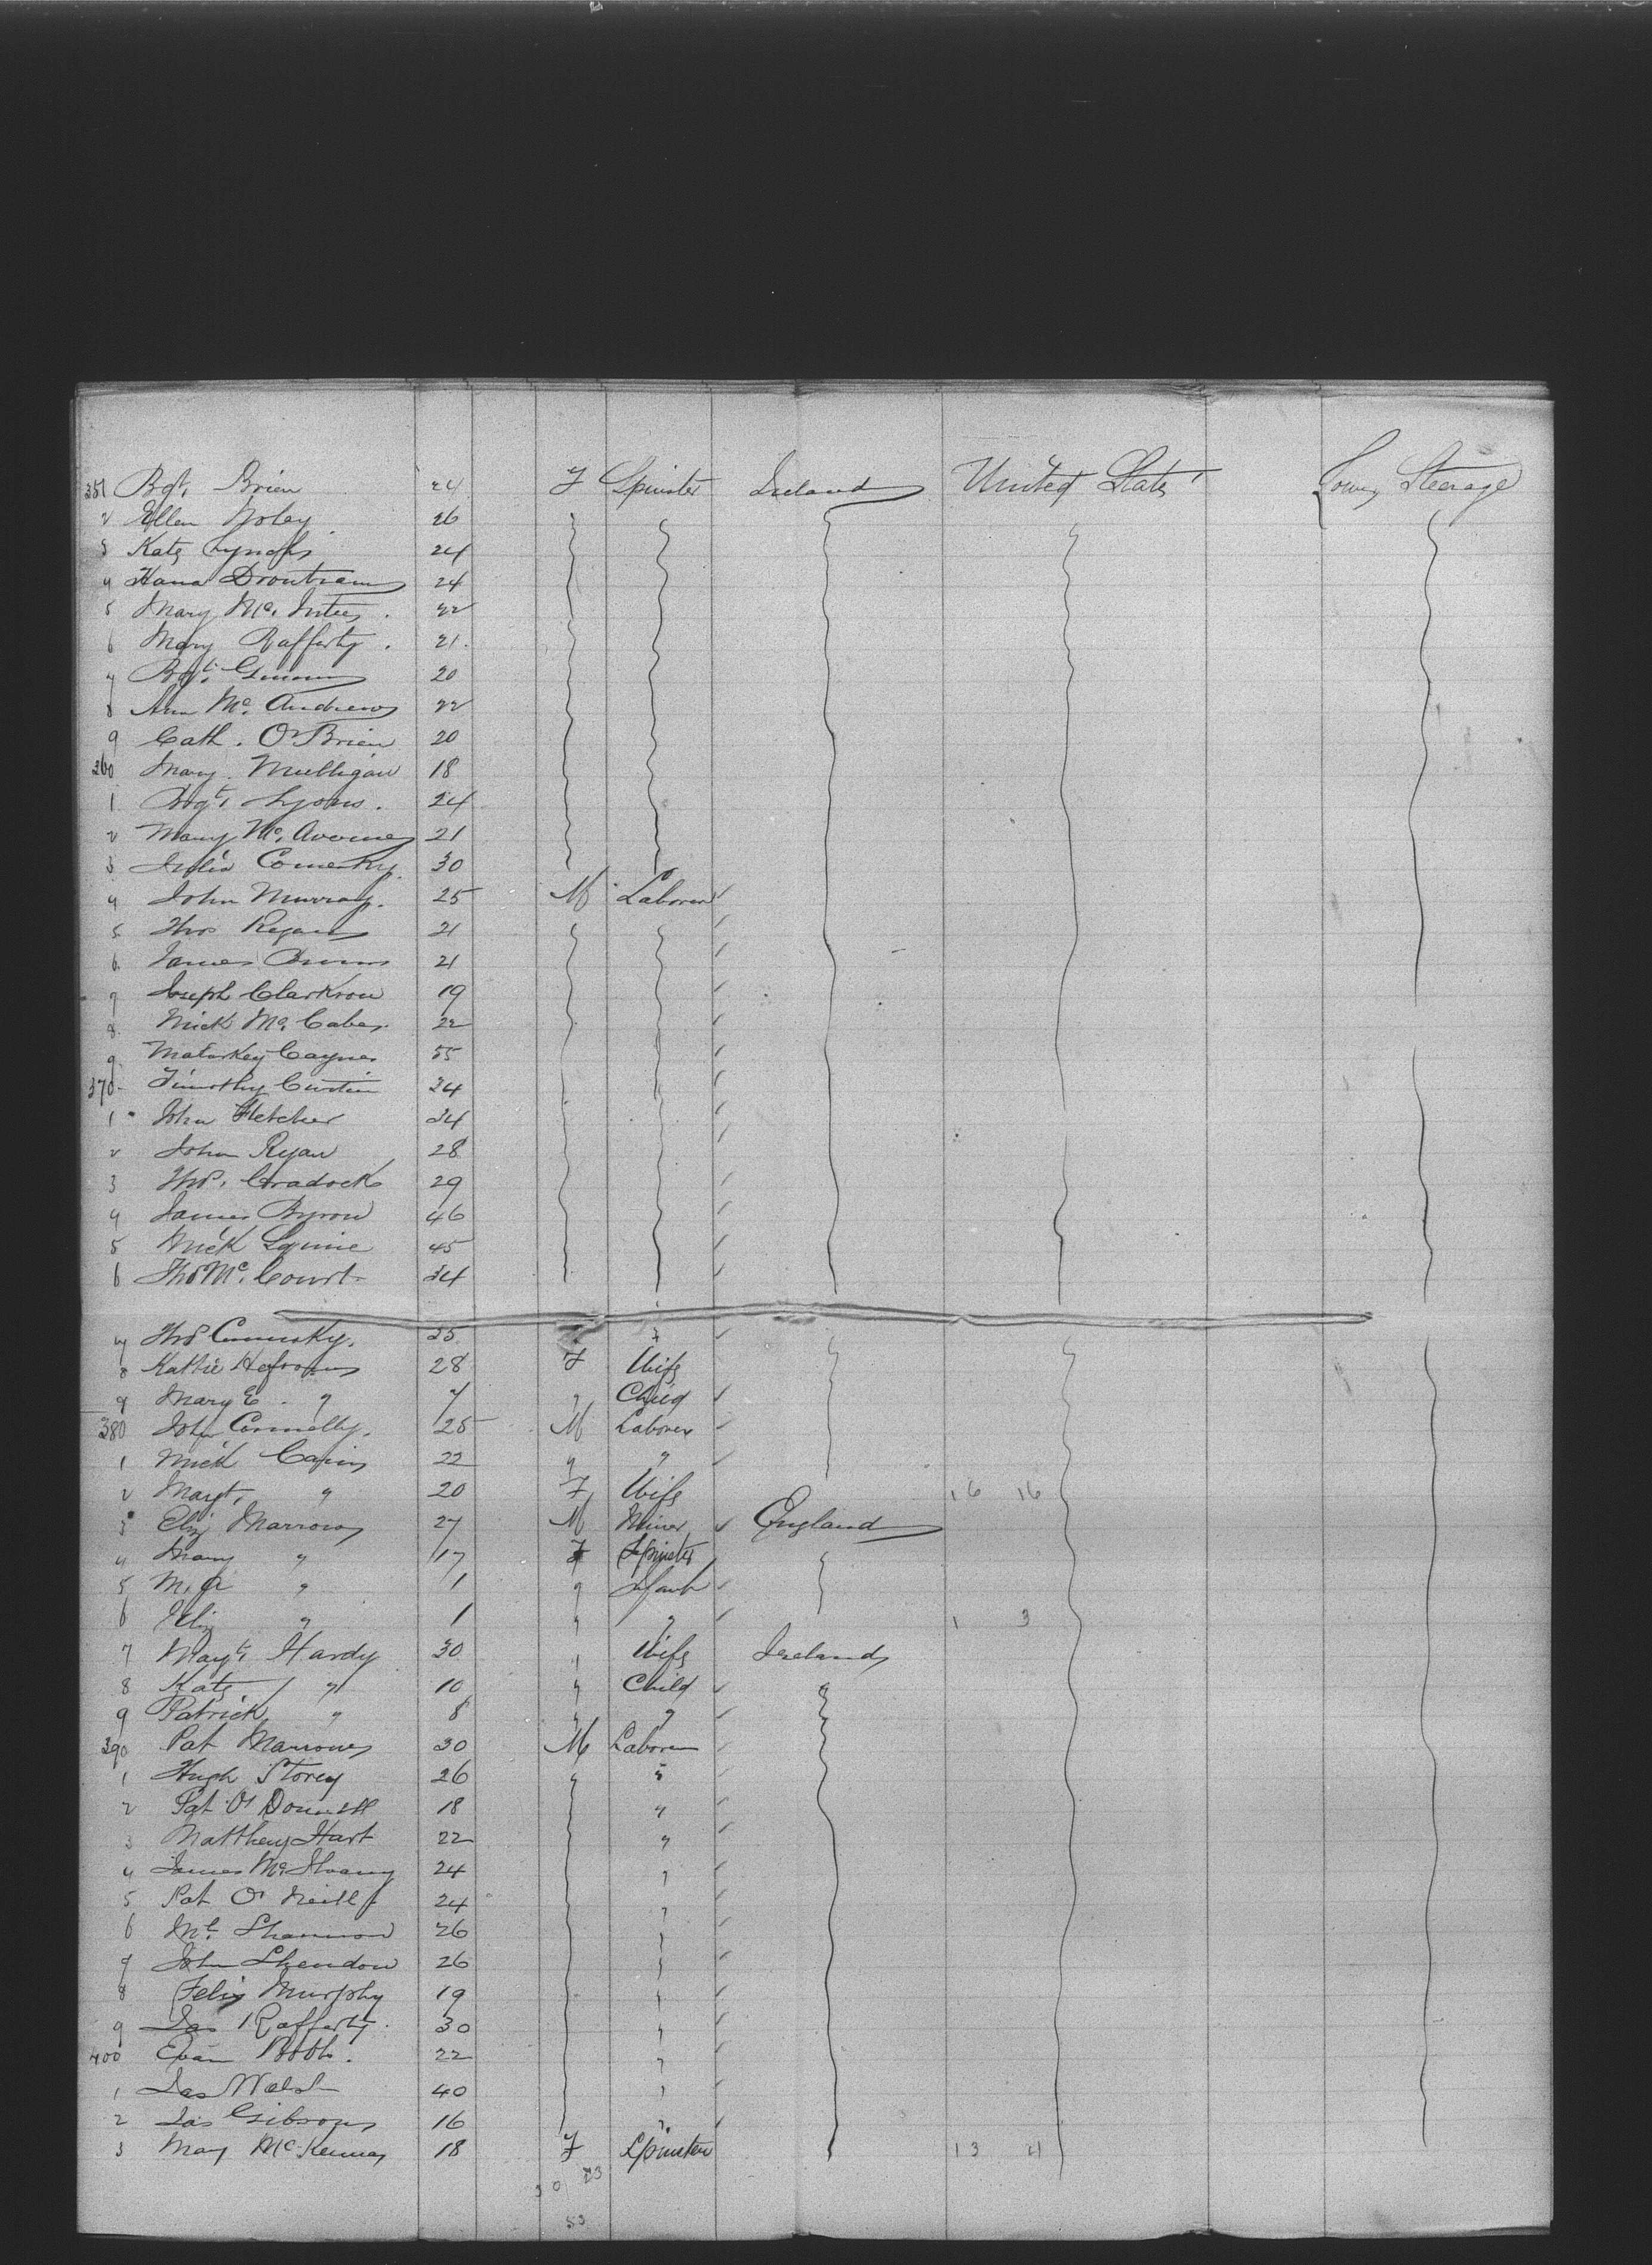 351 Bgt. Brien 24 F Spinster Ireland United States Lower Steerage
2 Ellen Foley 26
3 Kate Lynch 24
4 Hana 24
5 Mary Mc. Entee 22
6 Mary Rafferty 21
7 Bgt. 20
8 Ann Mc. Andrews 22
9 Cath. O'Brien 20
360 Mary Mulligan 18
1 Bgt. Lyons 24
2 Mary Mc. 21
3 Julia Comerky 30
4 John Murray 25 M Laborer
5 Thos Regan 21
6 James Burns 21
7 Joseph Clarkson 19
8 Mick Mc. Cabe 22
9 55
370 Timothy Curtin 24
1 John Fletcher 34
2 John Ryan 28
3 Thos. Cradock 29
4 James Byron 46
5 Mick Squire 45
6 Thos Mc. Court 34
7 Thos 25 "
8 Kattie 28 F Wife
9 Mary E. " 7 " Child
380 John Connelly 25 M Laborer
1 Mick Cairns 22 " "
2 Margt. " 20 F Wife 16 16
3 Eliz Marrow 27 M Miner England
4 Mary " 17 F Spinster
5 M. A " 1 " Infant
6 Eliz " 1 " " 1 3
7 Mayt. Hardy 30 " Wife Ireland
8 Kate " 10 " Child "
9 Patrick " 8 " "
390 Pat Marrow 30 M Laborer
1 Hugh Storey 26 " "
2 Pat O' Donnell 18 "
3 Matthew Hart 22 "
4 James Mc. 24 "
5 Pat O' Neill 24 "
6 Ml. Shannon 26 "
7 John 26 "
8 Felix Murphy 19 "
9 Jas Rafferty 30 "
400 Evan Booth 22 "
1 Jas Walsh 40 "
2 Jas Gibson 16 "
3 Mary McKenna 18 F Spinster 13 4
30 23
53